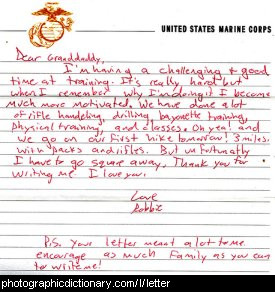 UNITED STATES MARINE CORPS
Dear Granddaddy,
I'm having a challenging & good
time at training. It's really hard but
when I remember why I'm doing it I become
much more motivated. We have done alot
of rifle handeling, drilling, bayonette training,
physical training, and classes. Oh yea! and
we go on our first hike tomorrow! 3 miles
with packs and rifles. But unfortunatly
I have to go square away. Thank you for
writing me! I love you.
Love
Robbie
P.S. Your letter meant alot to me
encourage as much family as you can
to write me!
photographicdictionary.com/l/letter